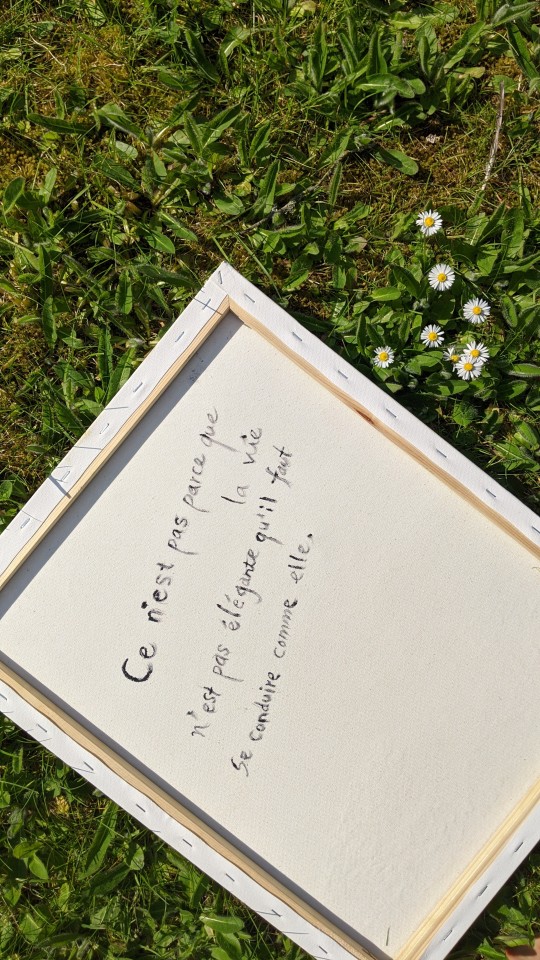 Ce n'est pas parce que
la vie
n'est pas élégante qu'il faut
se conduire comme elle.